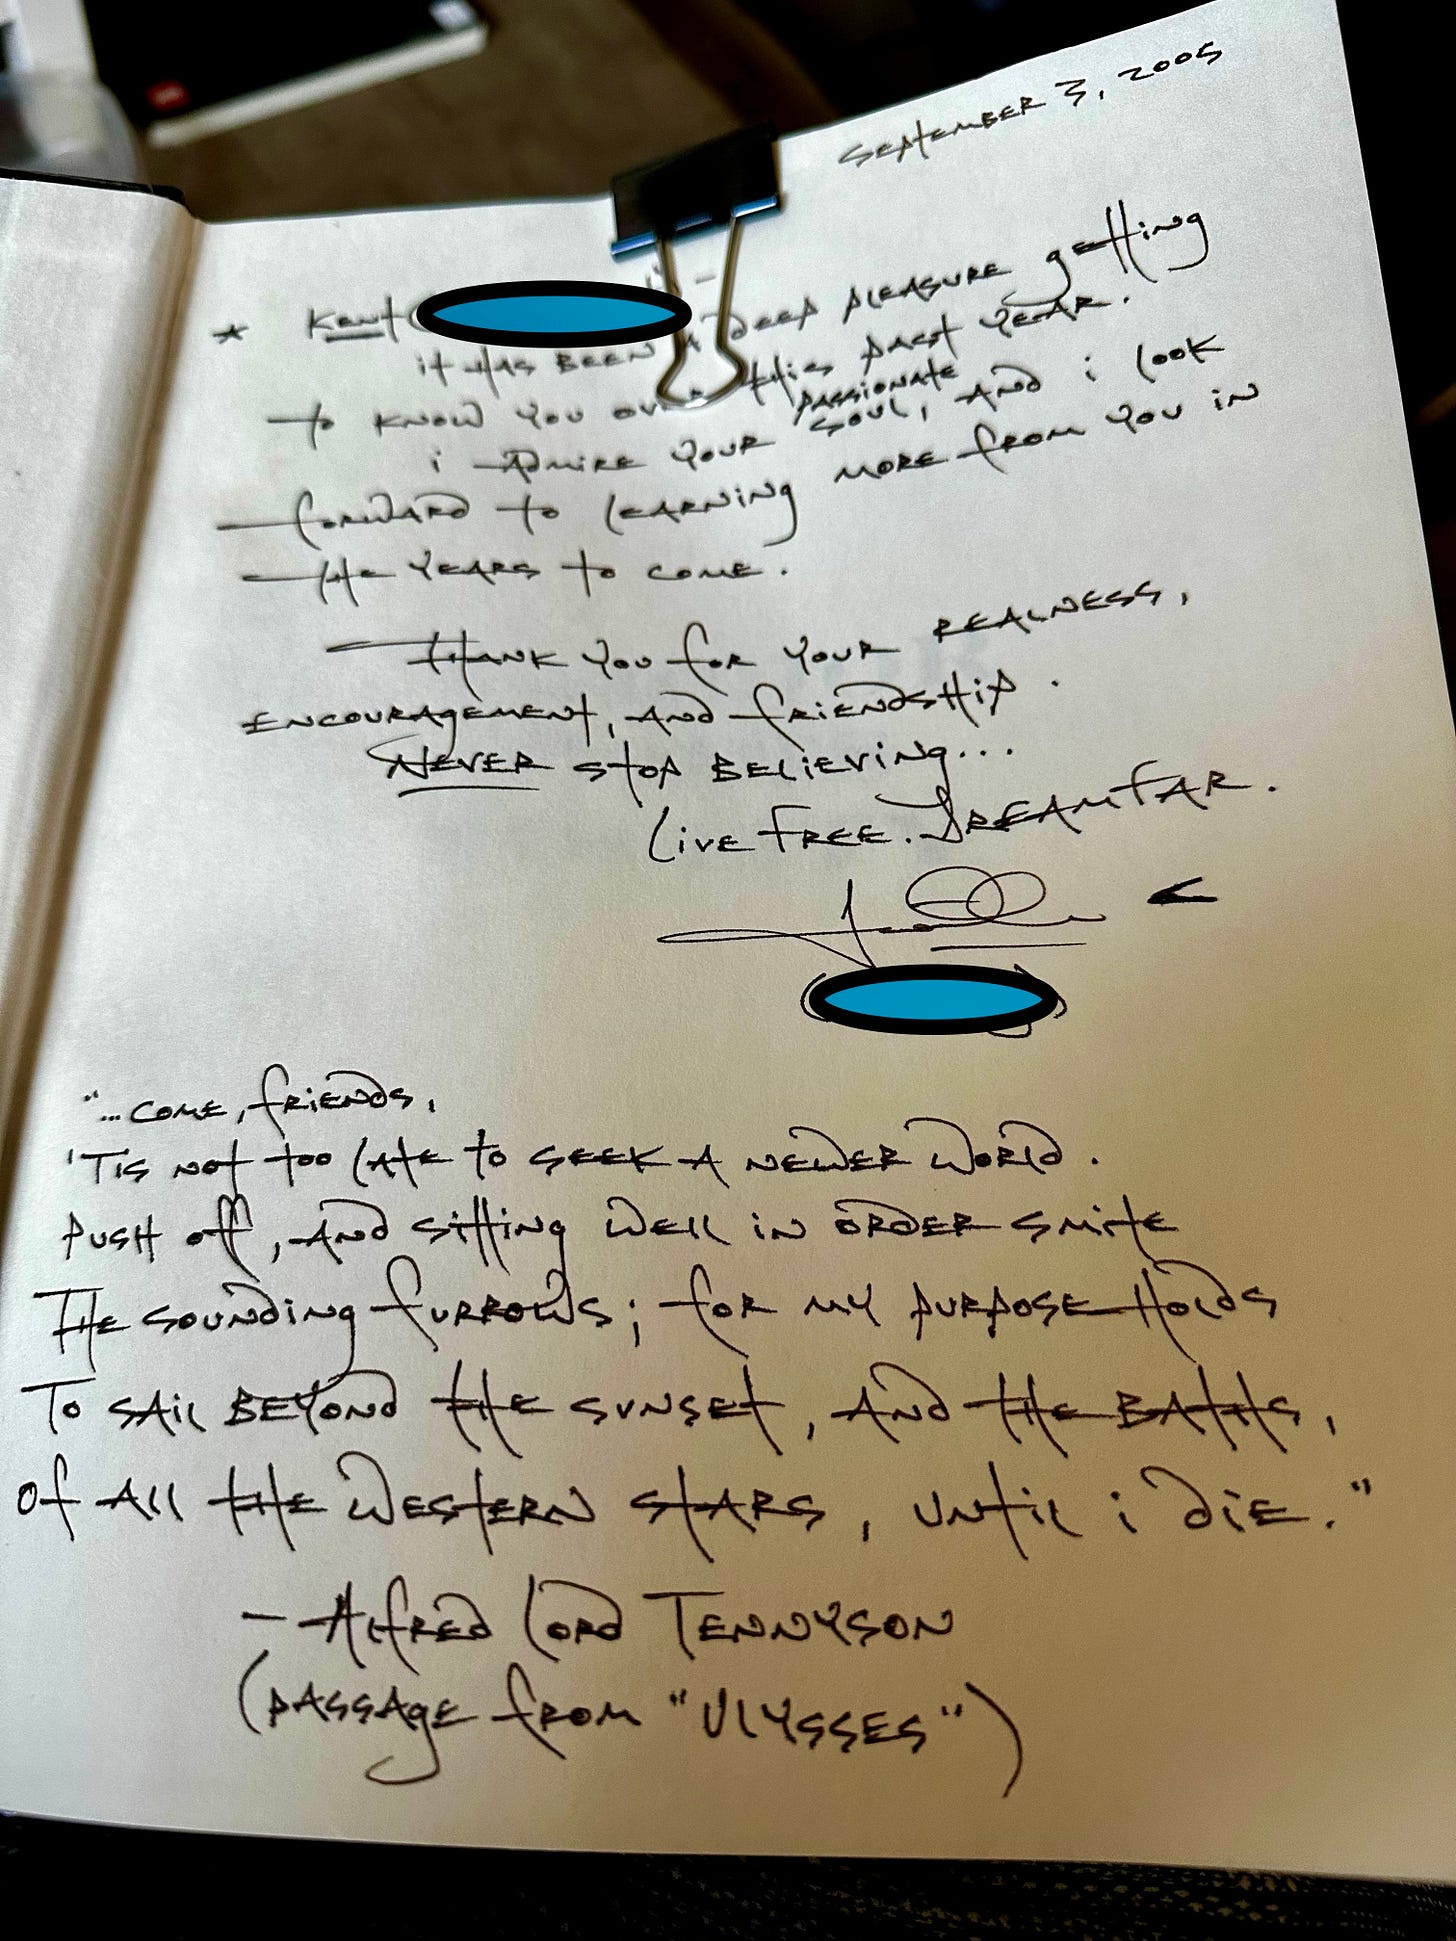 September 3, 2005
* Kent
it has been a deep pleasure getting
to know you over this past year.
i admire your passionate soul, and i look
forward to learning more from you in
the years to come.
Thank you for your realness,
encouragement, and friendship.
Never stop believing...
Live Free. Dream Far.
"...come, friends,
'Tis not too late to seek a newer world.
Push off, and sitting well in order smite
The sounding furrows; for my purpose holds
To sail beyond the sunset, and the baths,
of all the western stars, until i die."
- Alfred Lord Tennyson
(passage from "Ulysses")